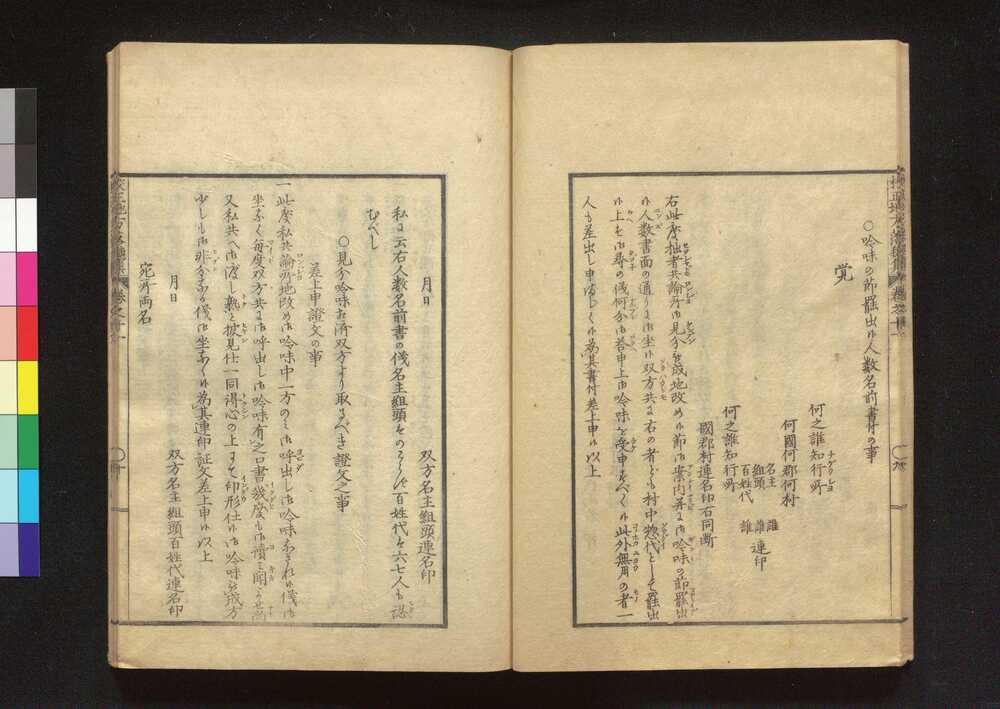 ○吟味の節罷出候人数名前書付の事
覚
何之誰知行所
何國何郡何村
名主 誰
組頭 誰
百姓代 誰
連印
何之誰知行所
國郡村連名印右同断
右此度拙者共論所御見分被成地改め御節御案内并御吟味の節罷出
候人数書面の通り御坐候双方共に右の者ども村中惣代として罷出
候上は御尋の儀何分御答申上御吟味を受申べく候此外無用の者一
人も差出し申まじく候為其書付差上申候以上
月日
双方名主組頭連名印
私に云右人数名前書の儀名主組頭をのみならで百姓代を六七人も認
むべし
○見分吟味相済双方より取べき證文之事
差上申證文の事
一此度私共論所地改め御吟味中一方のみ御呼出し御吟味なされ候儀御
坐なく毎度双方共に御呼出し御吟味有之口書幾度も御讀み聞かせ尚
又私共へ御渡し熟と披見仕一同得心の上にて印形仕候御吟味被成方
少しも御非分なる儀御坐なく候為其連印証文差上申候以上
月日
双方名主組頭百姓代連名印
宛所両名